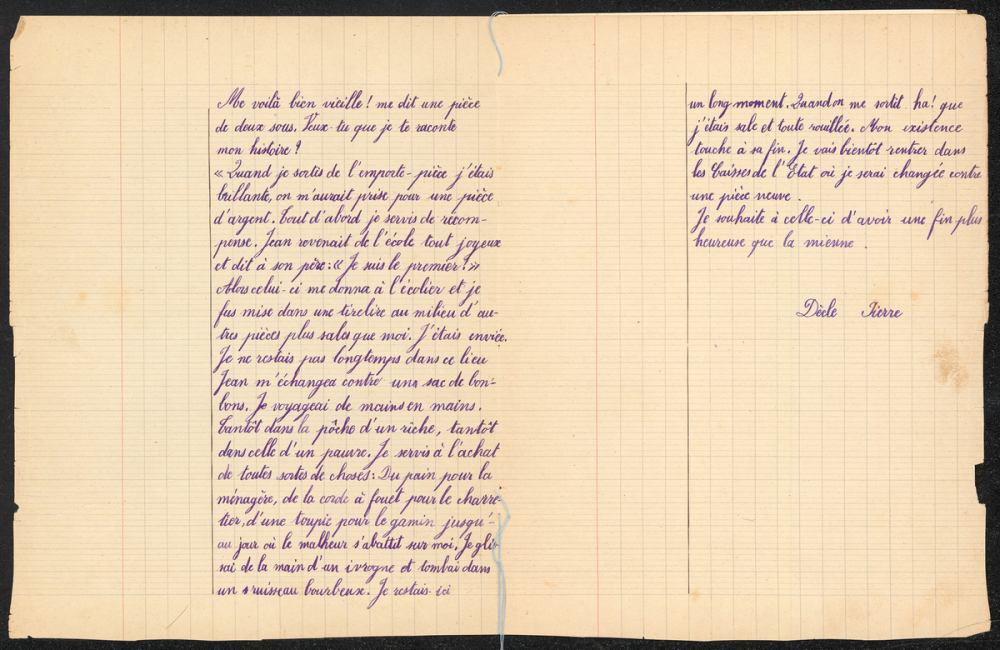 Me voilà bien vieille ! me dit une pièce
de deux sous. Veux-tu que je te raconte
mon histoire ?
« Quand je sortis de l'emporte-pièce j'étais
brillante, on m'aurait prise pour une pièce
d'argent. Tout d'abord je servis de récom-
pense. Jean revenait de l'école tout joyeux
et dit à son père : « Je suis le premier ! »
Alors celui-ci me donna à l'écolier et je
fus mise dans une tirelire au milieu d'au-
tres pièces plus sales que moi. J'étais enviée.
Je ne restais pas longtemps dans ce lieu
Jean m'échangea contre un sac de bon-
bons. Je voyageai de mains en mains.
Tantôt dans la pôche d'un riche, tantôt
dans celle d'un pauvre. Je servis à l'achat
de toutes sortes de choses : Du pain pour la
ménagère, de la corde à fouet pour le charre-
tier, d'une toupie pour le gamin jusqu'-
au jour où le malheur s'abattit sur moi. Je glis-
sai de la main d'un ivrogne et tombai dans
un ruisseau bourbeux. Je restais ici
un long moment. Quand on me sortit ha! que
j'étais sale et toute rouillée. Mon existence
touche à sa fin. Je vais bientôt rentrer dans
les Caisses de l'Etat où je serai changée contre
une pièce neuve.
Je souhaite à celle-ci d'avoir une fin plus
heureuse que la mienne.
Dècle Pierre